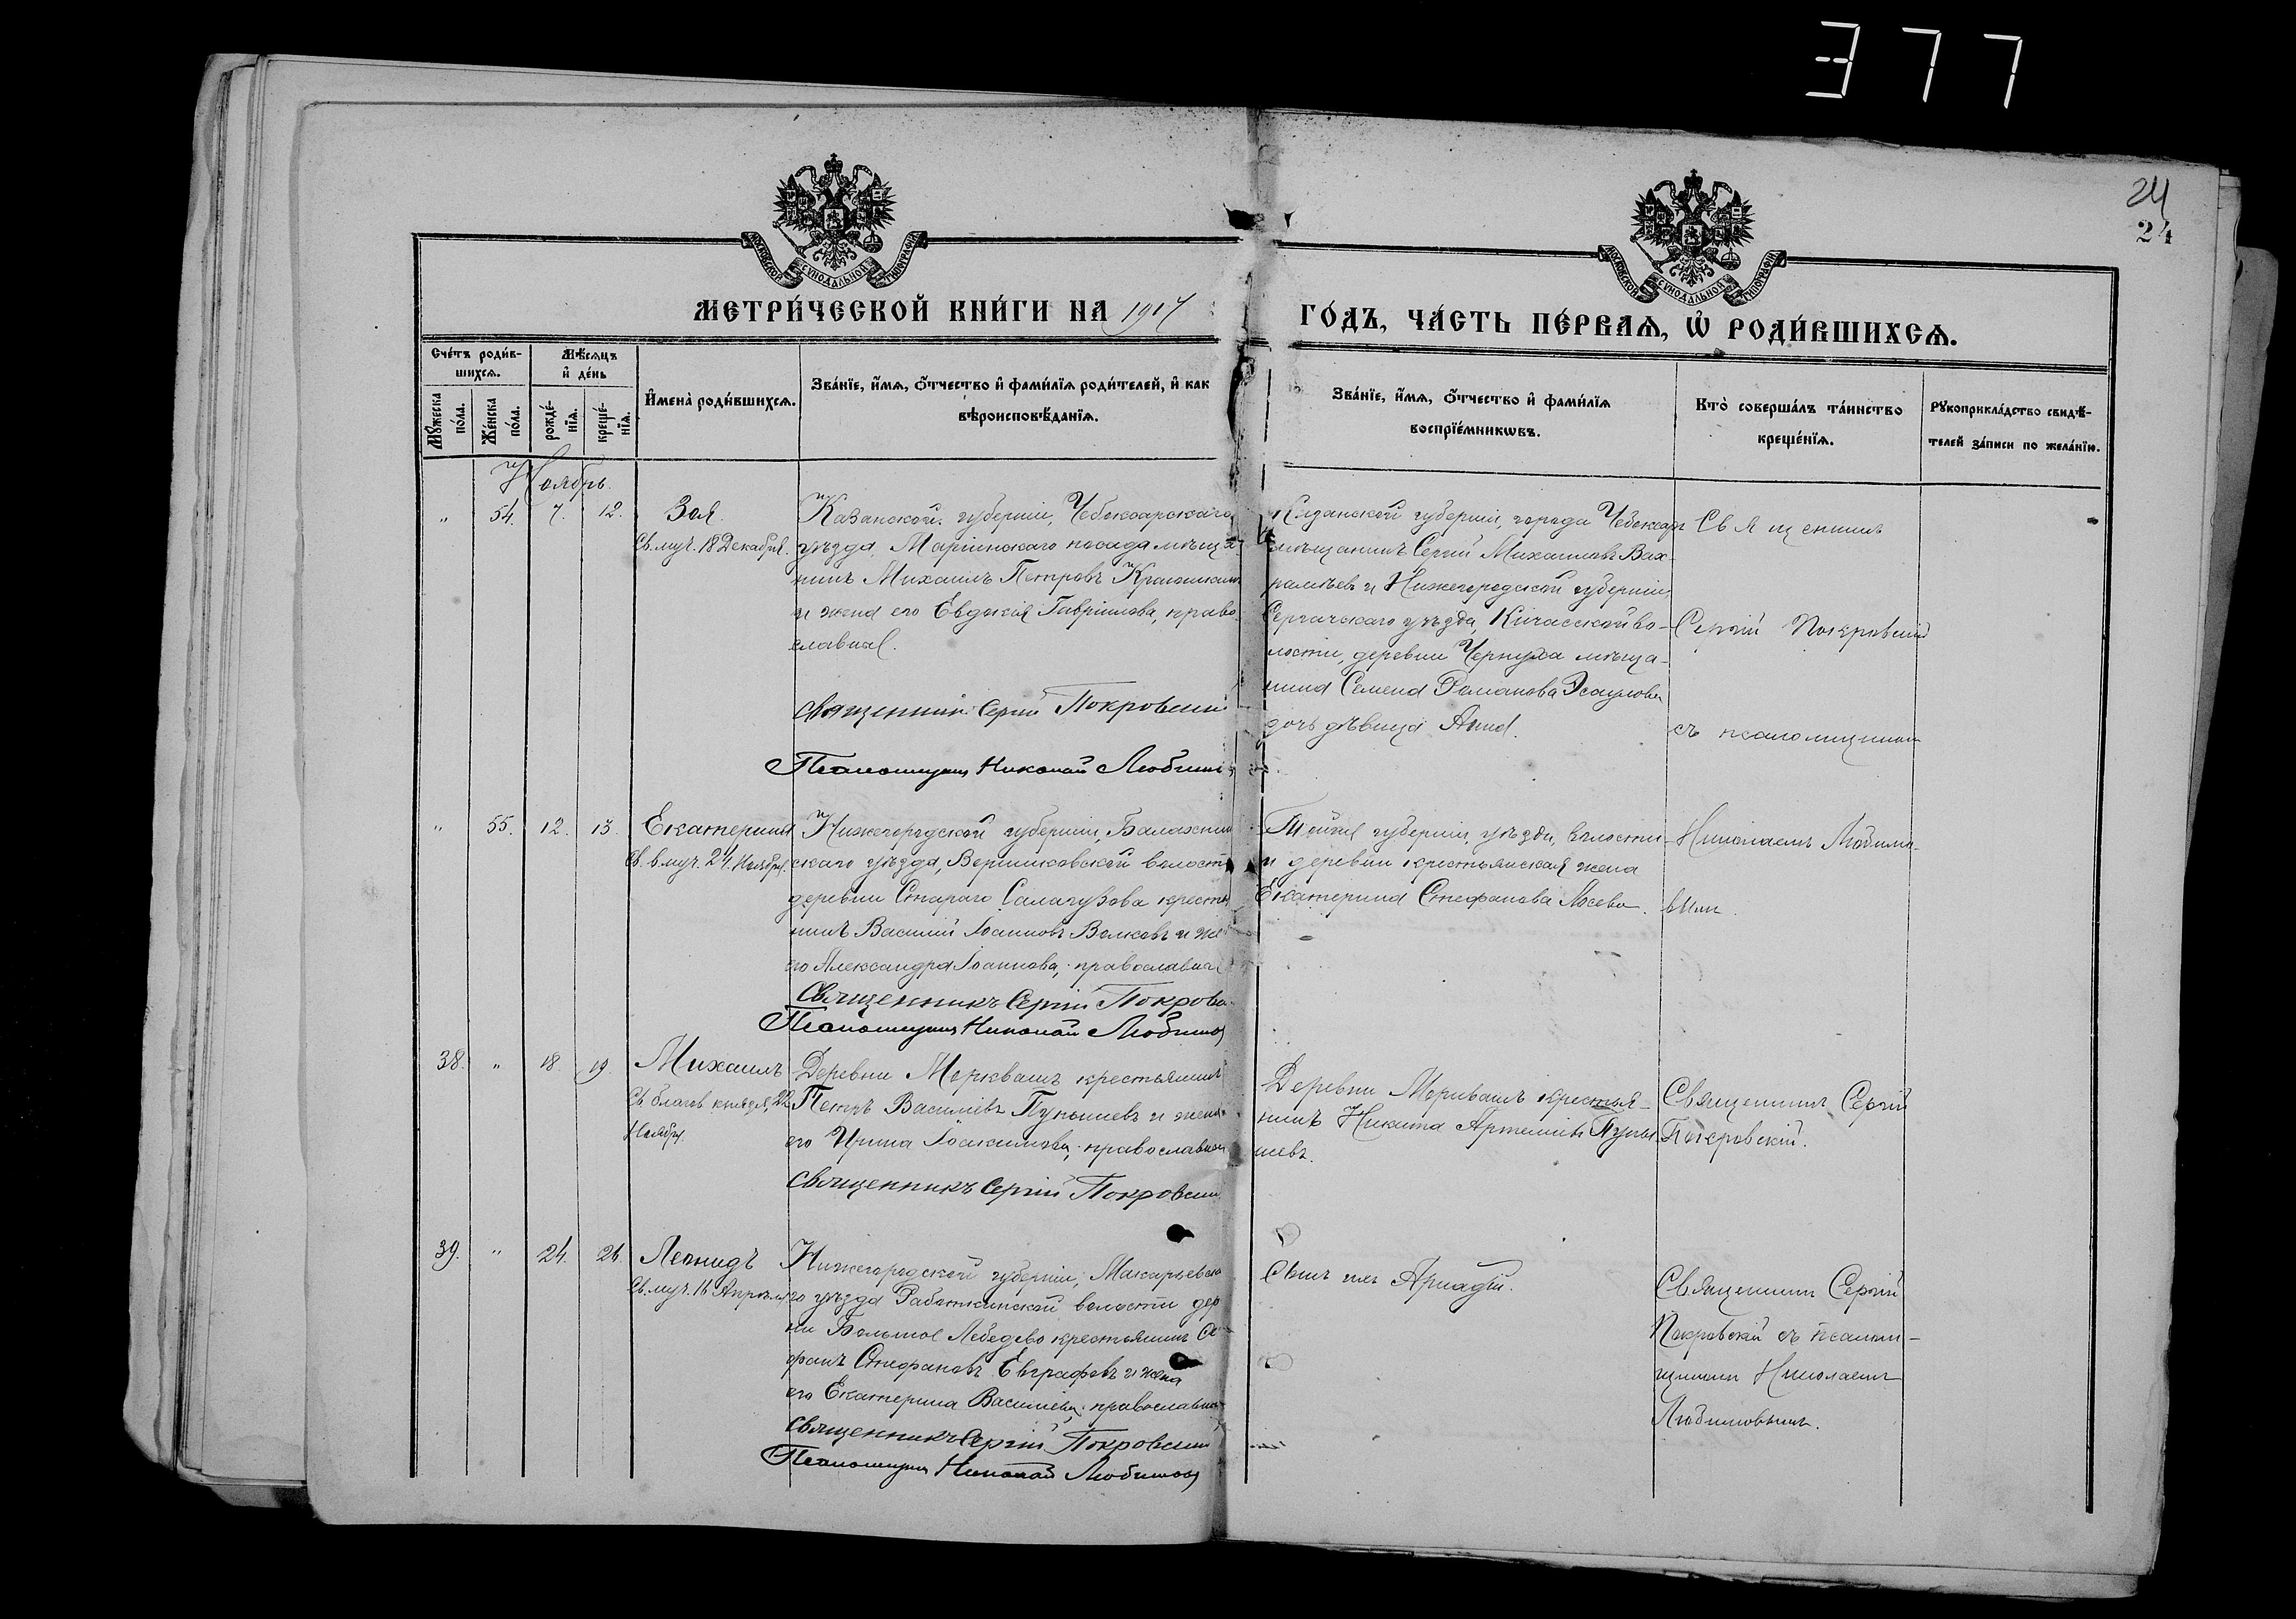 377
24
24
МОСКОВСКОЙ СУНОДАЛЬНОЙ ТИПОГРАФІИ
МОСКОВСКОЙ СУНОДАЛЬНОЙ ТИПОГРАФІИ
МЕТРИ́ЧЕСКОЙ КНИ́ГИ НА 1917
ГО́ДЪ, ЧА́СТЬ ПЕ́РВАЯ, Ѡ҆ РОДИ́ВШИХСЯ.
Сче́тъ роди́вшихся.
Му́жеска по́ла.
Же́нска по́ла.
Мѣ́сяцъ и҆ де́нь
рожде́нїя.
креще́нїя.
И҆мена̀ роди́вшихся.
Зва́нїе, и҆́мя, о҆́тчество и҆ фами́лїя роди́телей, и҆ как
вѣроисповѣ́данїя.
Зва́нїе, и҆́мя, о҆́тчество и҆ фами́лїя
воспрїе́мникѡвъ.
Кто̀ соверша́лъ та́инство
креще́нїя.
Рꙋкоприкла́дство свидѣ́-
телей за́писи по жела́нїю.
Ноябрь.
" 54. 7. 12. Зоя.
Св. муч. 18 Декабря.
Казанской губерніи, Чебоксарскаго
уѣзда, Маріинскаго посада мѣща-
нинъ Михаилъ Петровъ
и жена его Евдокія Гавріилова, право-
славные.
Священникъ Сергій Покровскій
Псаломщикъ Николай Любимовъ
Казанской губерніи, города Чебоксаръ
мѣщанинъ Сергій Михаиловъ Вах-
рамѣевъ и Нижегородской губерніи
Сергачскаго уѣзда, во-
лости, деревни Чернуха мѣща-
нина Семена Романова
дочь дѣвица Анна.
Священникъ
Сергій Покровскій
съ псаломщикомъ
" 55. 12. 13. Екатерина
Св. в. муч. 24 Ноября.
Нижегородской губерніи, Балахнин-
скаго уѣзда, волости
деревни Стараго крестья
нинъ Василій Іоанновъ Волковъ и жена
его Александра Іоаннова, православные
Священникъ Сергій Покровс
Псаломщикъ Николай Любимовъ
Той же губерніи, уѣзда, волости
и деревни крестьянская жена
Екатерина Стефанова
Николаемъ Любимо-
вымъ.
38. " 18. 19. Михаилъ
Св. благов. князя, 22
Ноября.
Деревни Моркваш крестьянинъ
Петръ Василіевъ и жена
его Ирина Іоакимова, православные
Священникъ Сергій Покровскій
Деревни Моркваш крестья-
нинъ Никита Артеміевъ
шевъ.
Священникъ Сергій
Покровскій.
39. " 24. 26. Леонидъ
Св. муч. 16 Апрѣля
Нижегородской губерніи, Макарьевска
го уѣзда Работкинской волости дер
ни Большое Лебедево крестьянинъ Сте-
фанъ Стефановъ Евграфовъ и жена
его Екатерина Василіева, православные
Священникъ Сергій Покровскій
Псаломщикъ Николай Любимовъ
Сынъ ихъ Аркадій.
Священникъ Сергій
Покровскій съ псалом-
щикомъ Николаемъ
Любимовымъ.